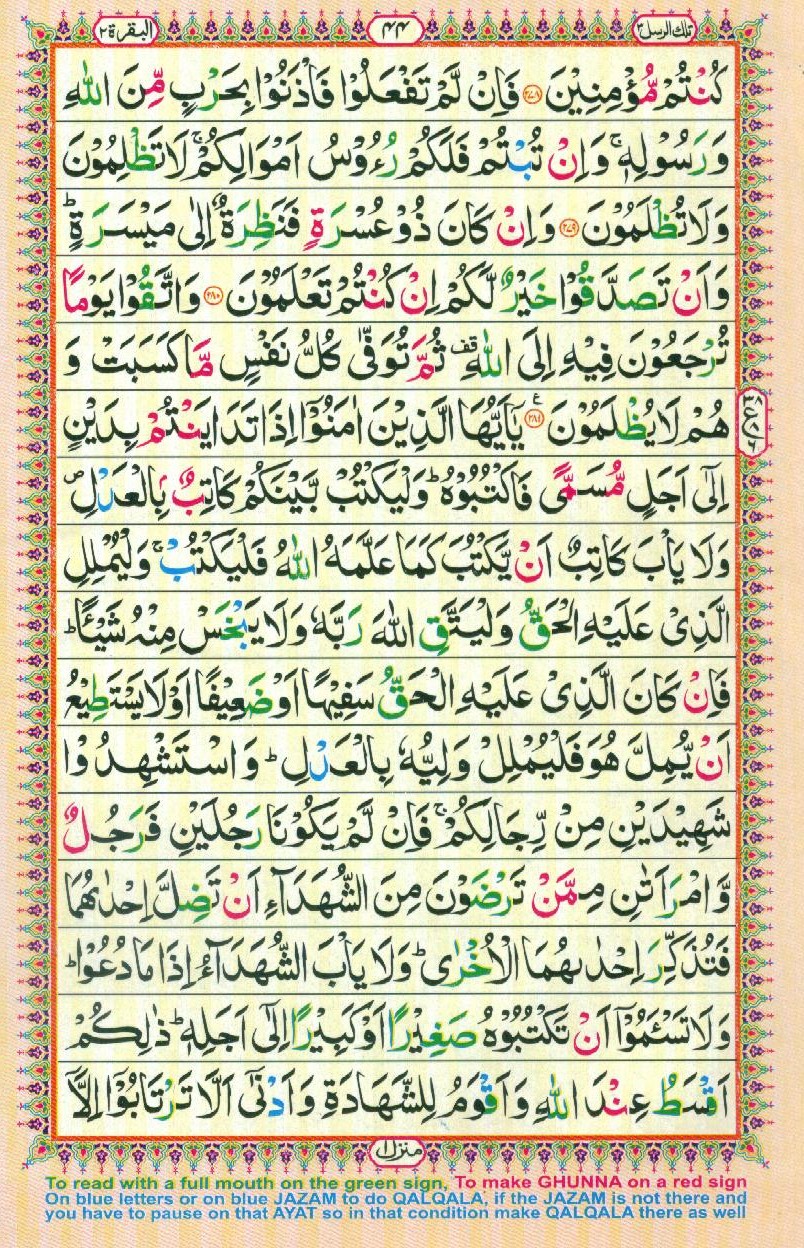 تلك الرسل ٣ ۴۴ البقرة ٢
كُنْتُمْ مُّؤْمِنِيْنَ ﴿۲۷۸﴾ فَاِنْ لَّمْ تَفْعَلُوْا فَاْذَنُوْا بِحَرْبٍ مِّنَ اللّٰهِ
وَرَسُوْلِهٖ ۚ وَاِنْ تُبْتُمْ فَلَكُمْ رُءُوْسُ اَمْوَالِكُمْ ۚ لَا تَظْلِمُوْنَ
وَلَا تُظْلَمُوْنَ ﴿۲۷۹﴾ وَاِنْ كَانَ ذُوْ عُسْرَةٍ فَنَظِرَةٌ اِلٰى مَيْسَرَةٍ ؕ
وَاَنْ تَصَدَّقُوْا خَيْرٌ لَّكُمْ اِنْ كُنْتُمْ تَعْلَمُوْنَ ﴿۲۸۰﴾ وَاتَّقُوْا يَوْمًا
تُرْجَعُوْنَ فِيْهِ اِلَى اللّٰهِ ۟قف ثُمَّ تُوَفّٰى كُلُّ نَفْسٍ مَّا كَسَبَتْ وَ
هُمْ لَا يُظْلَمُوْنَ ﴿۲۸۱﴾ ع يٰۤاَيُّهَا الَّذِيْنَ اٰمَنُوْۤا اِذَا تَدَايَنْتُمْ بِدَيْنٍ
اِلٰۤى اَجَلٍ مُّسَمًّى فَاكْتُبُوْهُ ؕ وَلْيَكْتُبْ بَّيْنَكُمْ كَاتِبٌۢ بِالْعَدْلِ ۪
وَلَا يَاْبَ كَاتِبٌ اَنْ يَّكْتُبَ كَمَا عَلَّمَهُ اللّٰهُ فَلْيَكْتُبْ ۚ وَلْيُمْلِلِ
الَّذِيْ عَلَيْهِ الْحَقُّ وَلْيَتَّقِ اللّٰهَ رَبَّهٗ وَلَا يَبْخَسْ مِنْهُ شَيْـًٔا ؕ
فَاِنْ كَانَ الَّذِيْ عَلَيْهِ الْحَقُّ سَفِيْهًا اَوْ ضَعِيْفًا اَوْ لَا يَسْتَطِيْعُ
اَنْ يُّمِلَّ هُوَ فَلْيُمْلِلْ وَلِيُّهٗ بِالْعَدْلِ ؕ وَاسْتَشْهِدُوْا
شَهِيْدَيْنِ مِنْ رِّجَالِكُمْ ۚ فَاِنْ لَّمْ يَكُوْنَا رَجُلَيْنِ فَرَجُلٌ
وَّامْرَاَتٰنِ مِمَّنْ تَرْضَوْنَ مِنَ الشُّهَدَآءِ اَنْ تَضِلَّ اِحْدٰىهُمَا
فَتُذَكِّرَ اِحْدٰىهُمَا الْاُخْرٰى ؕ وَلَا يَاْبَ الشُّهَدَآءُ اِذَا مَا دُعُوْا ؕ
وَلَا تَسْـَٔمُوْۤا اَنْ تَكْتُبُوْهُ صَغِيْرًا اَوْ كَبِيْرًا اِلٰۤى اَجَلِهٖ ؕ ذٰلِكُمْ
اَقْسَطُ عِنْدَ اللّٰهِ وَاَقْوَمُ لِلشَّهَادَةِ وَاَدْنٰۤى اَلَّا تَرْتَابُوْۤا اِلَّاۤ
منزل ۱
To read with a full mouth on the green sign, To make GHUNNA on a red sign
On blue letters or on blue JAZAM to do QALQALA, if the JAZAM is not there and
you have to pause on that AYAT so in that condition make QALQALA there as well